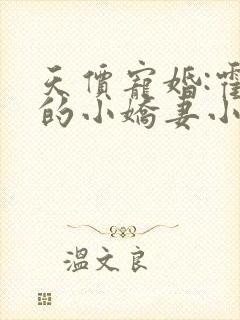 天價寵婚:霍
的小嬌妻小
溫文良